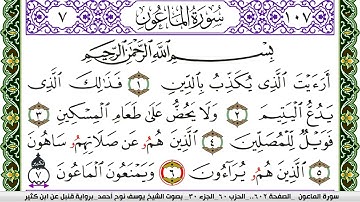 ٧ سُورَةُ المَاعُون ١٠٧
بِسْمِ اللَّهِ الرَّحْمَٰنِ الرَّحِيمِ
أَرَءَيْتَ الَّذِى يُكَذِّبُ بِالدِّينِ ١ فَذَٰلِكَ الَّذِى
يَدُعُّ الْيَتِيمَ ٢ وَلَا يَحُضُّ عَلَىٰ طَعَامِ الْمِسْكِينِ ٣
فَوَيْلٌ لِّلْمُصَلِّينَ ٤ الَّذِينَ هُمُۥ عَن صَلَاتِهِمُۥ سَاهُونَ
٥ الَّذِينَ هُمُۥ يُرَآءُونَ ٦ وَيَمْنَعُونَ الْمَاعُونَ ٧
سورة الماعون .. الصفحة ٦٠٢.. الحزب ٦٠.. الجزء ٣٠.. بصوت الشيخ يوسف نوح أحمد ..برواية قنبل عن ابن كثير